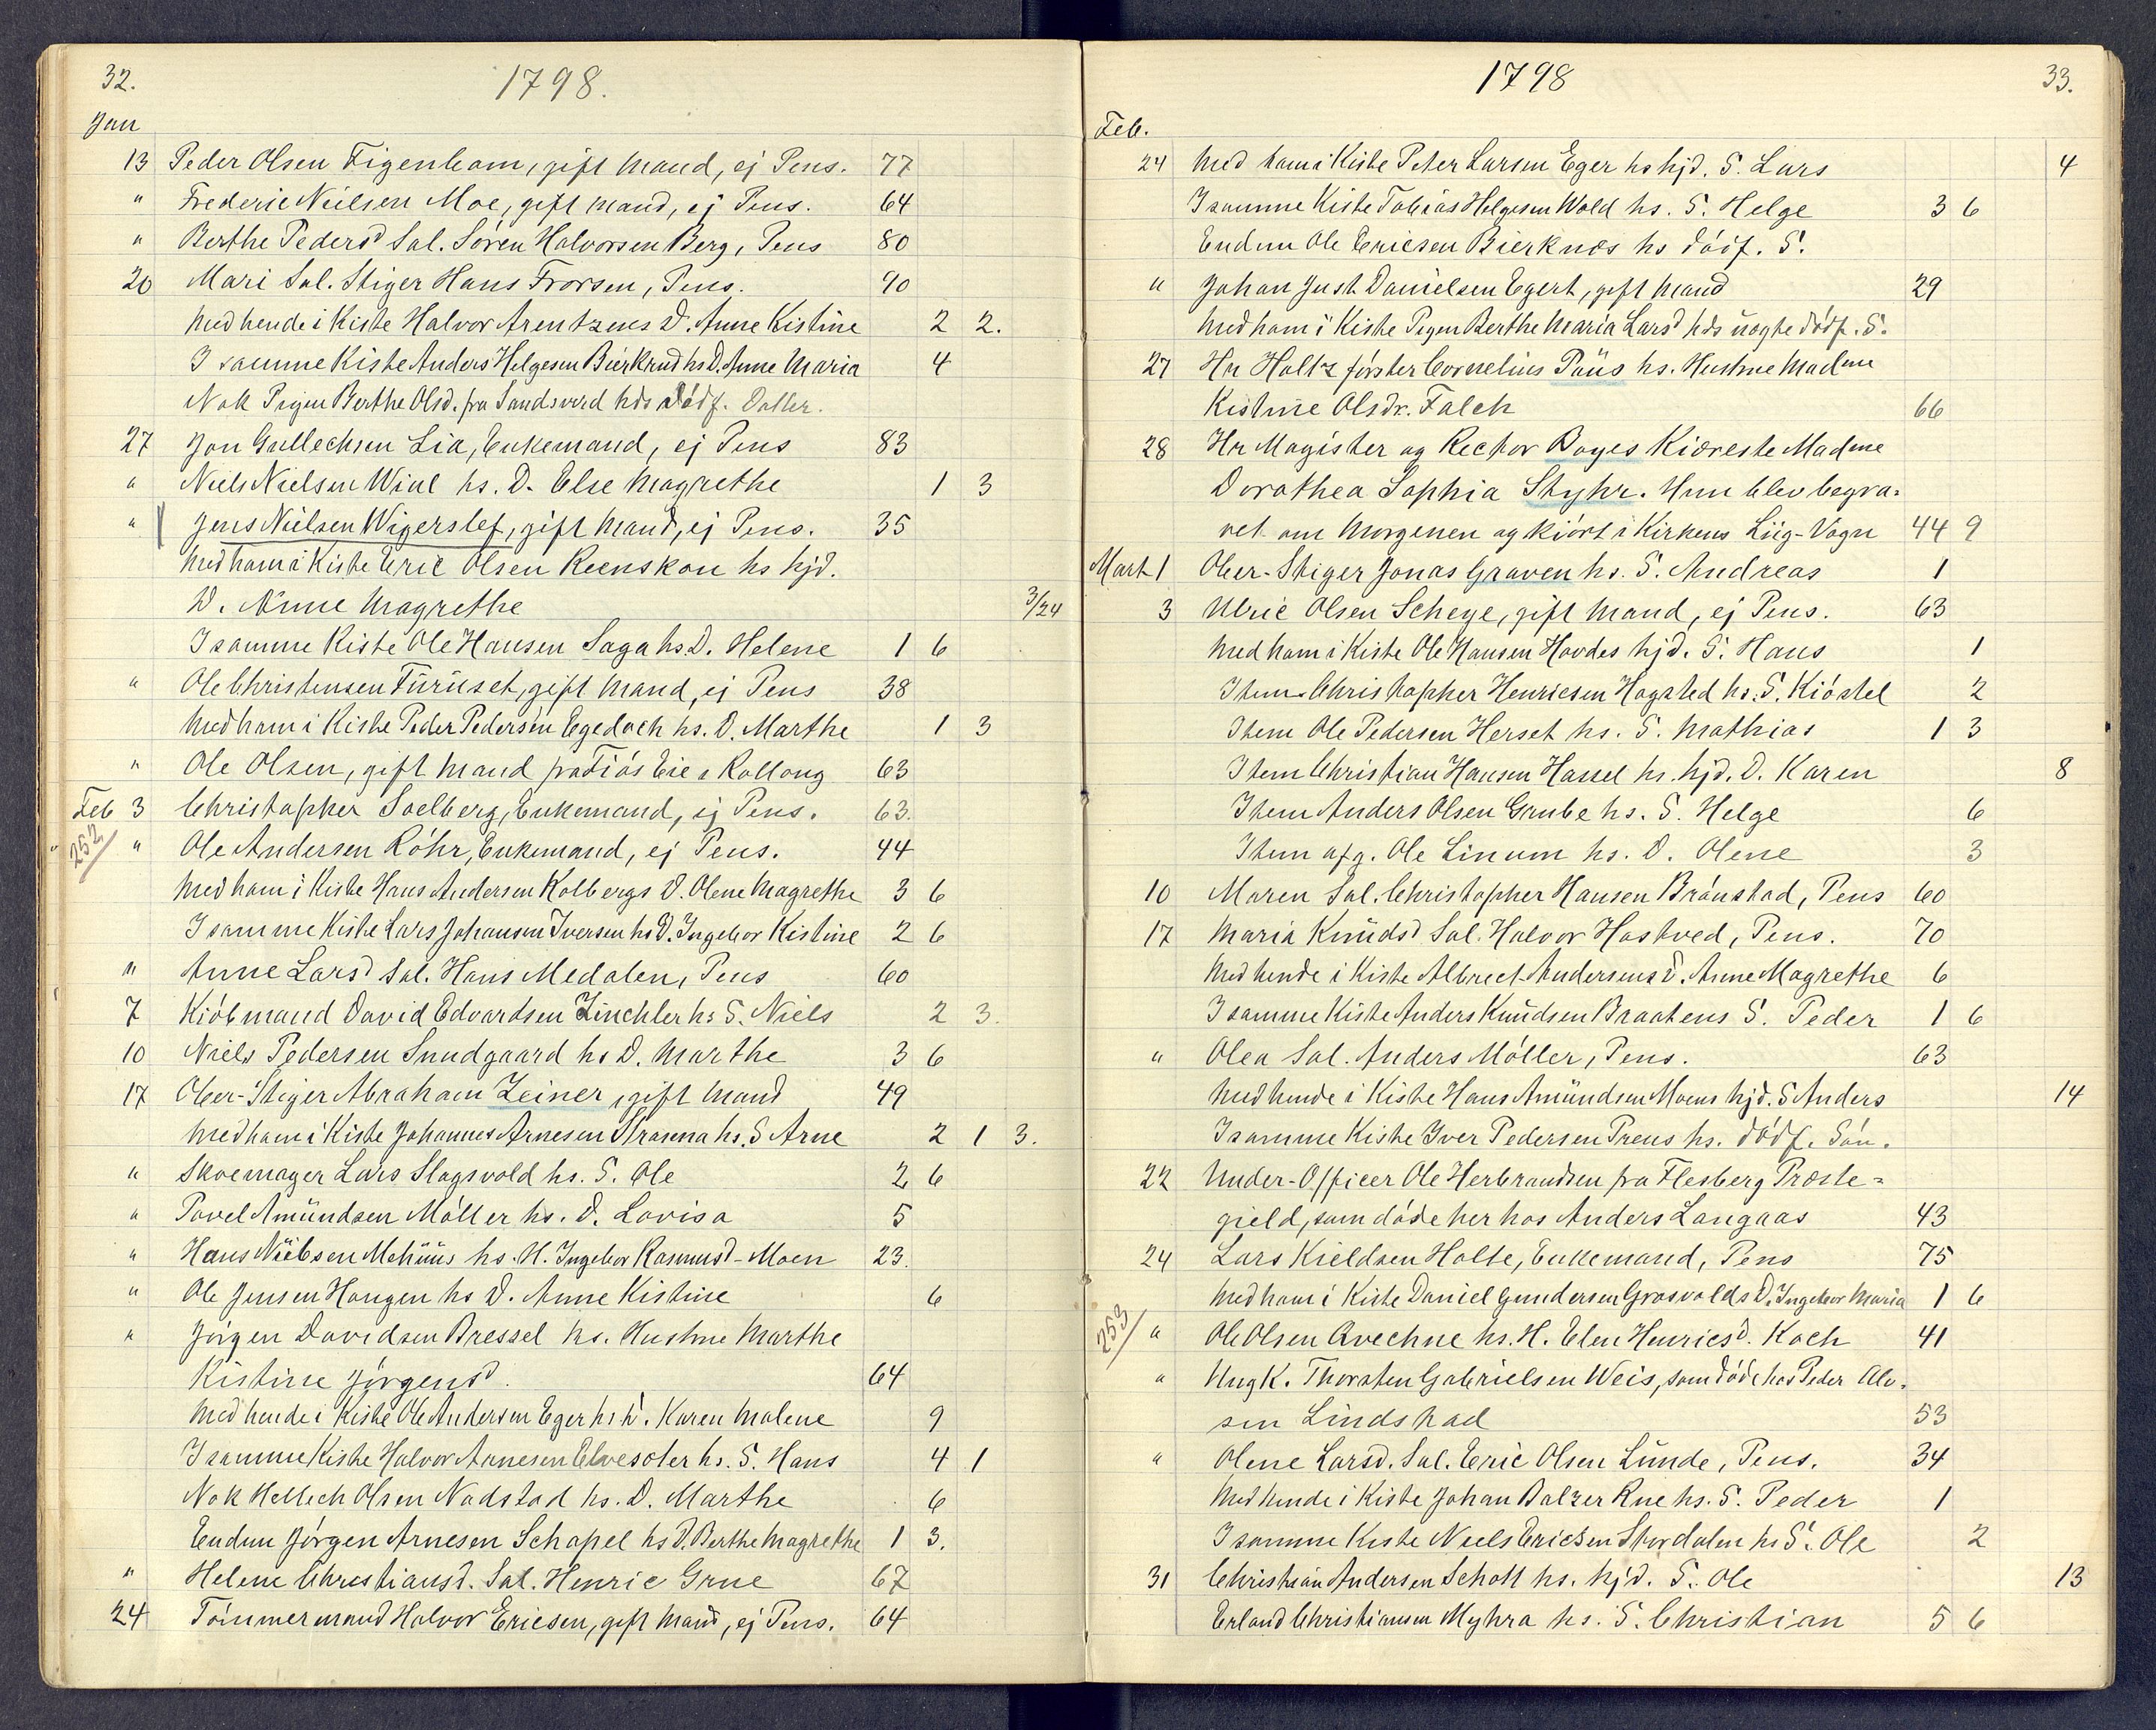 32.
1798.
Jan
13 Peder Olsen Figenbom, gift Mand, ej Pens. 77
" Frederic Nielsen Moe, gift Mand, ej Pens. 64
" Berthe Pedersd Sal. Søren Halvorsen Berg, Pens 80
20 Mari Sal. Stiger Hans Frorsen, Pens. 90
Med hende i Kiste Halvor Arentzens D. Anne Kistine 2 2.
I samme Kiste Anders Helgesen Bierkrud hs D. Anne Maria 4
Nok Pigen Berthe Olsd. fra Sandsverd hds dødf. Datter.
27 Jon Gullechsen Lia, Enkemand, ej Pens 83
" Niels Nielsen Wiul hs. D. Else Magrethe 1 3
" Jens Nielsen Wigerslef, gift Mand, ej Pens. 35
Med ham i Kiste Eric Olsen Reenskon hs hjd.
D. Anne Magrethe 3/24
I samme Kiste Ole Hansen Saga hs. D. Helene 1 6
" Ole Christensen Furuset, gift Mand, ej Pens 38
Med ham i Kiste Peder Pedersen Egedoch hs. D. Marthe 1 3
" Ole Olsen, gift Mand fra Fiøs Eie i Rollong 63
Feb 3 Christopher Soelberg, Enkemand, ej Pens. 63.
252 " Ole Andersen Røhr, Enkemand, ej Pens. 44
Med ham i Kiste Hans Andersen Kolbergs D. Olene Magrethe 3 6
I samme Kiste Lars Johansen Iversen hs D. Ingebor Kistine 2 6
" Anne Larsd Sal. Hans Medalen, Pens 60
7 Kiøbmand David Edvardsen Zinchler hs S. Niels 2 3.
10 Niels Pedersen Snudgaard hs D. Marthe 3 6
17 Ober-Stiger Abraham Zeiner, gift Mand 49
Med ham i Kiste Johannes Arnesen Strasena hs. S Arne 2 1 3.
" Skoemager Lars Slagsvold hs. S. Ole 2 6
" Povel Amundsen Møller hs. D. Lovisa 5
" Hans Nielsen Mehuus hs. H. Ingebor Rasmusd-Moen 23.
" Ole Jensen Hongen hs D. Anne Kistine 6
" Jørgen Davidsen Bressel hs. Hustrue Marthe
Kistine Jørgensd. 64
Med hende i Kiste Ole Andersen Eger hs D. Karen Malene 9
I samme Kiste Halvor Arnesen Elvesoter hs. S. Hans 4 1
Nok Hellech Olsen Nadstad hs. D. Marthe 6
Endnu Jørgen Arnesen Schapel hs D. Berthe Magrethe 1 3.
" Helene Christiansd. Sal. Henric Grue 67
24 Tømmermand Halvor Ericsen, gift Mand, ej Pens. 64
1798
33.
Feb.
24 Med ham i Kiste Peter Larsen Eger hs hjd. S. Lars 4
I samme Kiste Tobias Helgesen Wold hs. S. Helge 3 6
Endnu Ole Ericsen Bierknes hs dødf. S.
" Johan Just Danielsen Egert, gift Mand 29
Med ham i Kiste Pigen Berthe Maria Larsd hds uægte dødf. S.
27 Hr Holtzførster Cornelius Paus hs. Hustrue Madme
Kistine Olsdr. Falch 66
28 Hr Magister og Rector Boyes Kiæreste Madme
Dorothea Sophia Styhr. Hun blev begra=
vet om Morgenen og kiørt i Kirkens Liig-Vogn 44 9
Mart 1 Ober-Stiger Jonas Graven hs. S. Andreas 1
3 Ulric Olsen Scheye, gift Mand, ej Pens. 63
Med ham i Kiste Ole Hansen Hovdes hjd. S. Hans 1
Item Christopher Henricsen Hogsted hs. S. Kiøstel 2
Item Ole Pedersen Herset hs. S. Mathias 1 3
Item Christian Hansen Hassel hs. hjd. D. Karen 8
Item Anders Olsen Grube hs. S. Helge 6
Item afg. Ole Linum hs. D. Olene 3
10 Maren Sal. Christopher Hansen Brånstad, Pens 60
17 Maria Knudsd Sal. Halvor Hostved, Pens. 70
Med hende i Kiste Albrect Andersens D. Anne Magrethe 6
I samme Kiste Anders Knudsen Braatens S. Peder 1 6
" Olea Sal. Anders Møller, Pens. 63
Med hende i Kiste Hans Amundsen Moens hjd. S Anders 14
I samme Kiste Iver Pedersen Preus hs. dødf. Søn.
22 Under-Officer Ole Herbrandsen fra Flesberg Præste=
gield, som døde her hos Anders Langaas 43
24 Lars Kieldsen Holte, Enkemand, Pens 75
Med ham i Kiste Daniel Gundersen Grosvolds D. Ingebor Maria 1 6
253 " Ole Olsen Qvechne hs. H. Elen Henricsd. Koch 41
" Ung K. Thorsten Gabrielsen Weis, som døde hos Peder Ole=
sen Lindstad 53
" Olene Larsd. Sal. Eric Olsen Lunde, Pens. 34
Med hende i Kiste Johan Balzer Rue hs. S. Peder 1
I samme Kiste Niels Ericsen Skordalen hs S. Ole 2
31 Christian Andersen Schott hs. hjd. S. Ole 13
Erland Christiansen Myhra hs. S. Christian 5 6